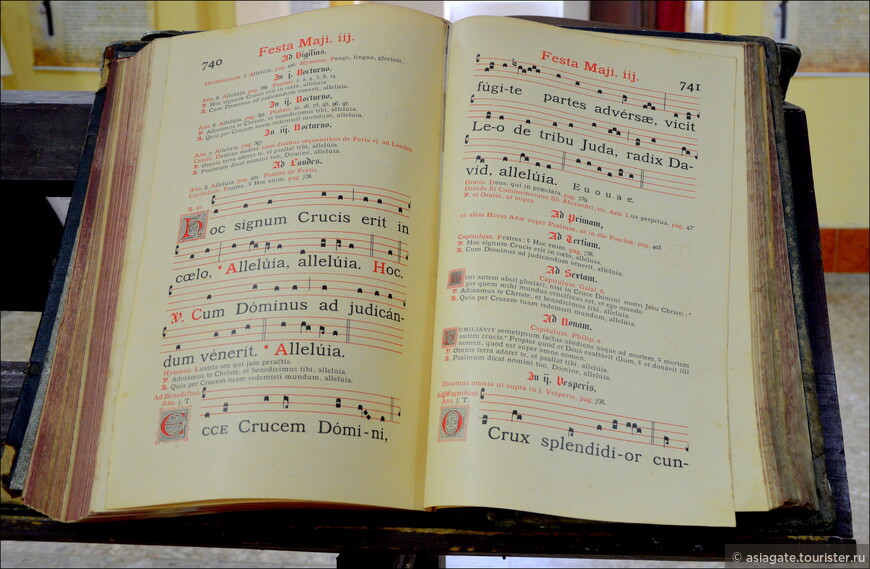 740
Festa Maji. iij.
Ad Vigilias.
In j. Nocturno.
℣. Hoc signum Crucis erit in cœlo, allelúia.
℟. Cum Dóminus ad judicándum vénerit, allelúia.
In ij. Nocturno.
℣. Adorámus te Christe, et benedícimus tibi, allelúia.
℟. Quia per Crucem tuam redemísti mundum, allelúia.
In iij. Nocturno.
℣. Omnis terra adóret te, et psallat tibi, allelúia.
℟. Psalmum dicat nómini tuo, Dómine, allelúia.
Ad Laudes.
Capitulum. Fratres : ℟. Hoc enim. pag. 738.
Hoc signum Crucis erit in
cœlo, * Allelúia, allelúia. Hoc.
℣. Cum Dóminus ad judicán-
dum vénerit. * Allelúia.
Hymnus. Lustris sex qui jam peráctis.
℣. Adorámus te Christe, et benedícimus tibi, allelúia.
℟. Quia per Crucem tuam redemísti mundum, allelúia.
Ad Benedictus
Aña. j. T.
Ecce Crucem Dómi-ni,
Festa Maji. iij.
741
fúgi-te partes advérsæ, vicit
Le-o de tribu Juda, radix Da-
vid, allelúia. E u o u a e.
Oratio. Deus, qui in præclára. pag. 739.
Ad Primam,
et alias Horas Añæ super Psalmos, ut in die Paschæ, pag. 402.
Ad Tertiam.
Capitulum. Fratres : ℟. Hoc enim, pag. 738.
℣. Hoc signum Crucis erit in cœlo, allelúia.
℟. Cum Dóminus ad judicándum vénerit, allelúia.
Ad Sextam.
Capitulum. Galat. 6.
Mihi autem absit gloriári, nisi in Cruce Dómini nostri Jesu Christi : *
per quem mihi mundus crucifíxus est, et ego mundo.
℣. Adorámus te Christe, et benedícimus tibi, allelúia.
℟. Quia per Crucem tuam redemísti mundum, allelúia.
Ad Nonam.
Capitulum. Philipp. 2.
Humiliavit semetípsum factus obédiens usque ad mortem, ℟. mortem
autem crucis. * Propter quod et Deus exaltávit illum, ℟. et donávit illi
nomen, quod est super omne nomen.
℣. Omnis terra adóret te, et psallat tibi, allelúia.
℟. Psalmum dicat nómini tuo, Dómine, allelúia.
In ij. Vesperis.
Dicuntur omnia ut supra in j. Vesperis, pag. 738.
Ad Magnificat
Aña. j. T.
O Crux splendídi-or cun-
© asiagate.tourister.ru